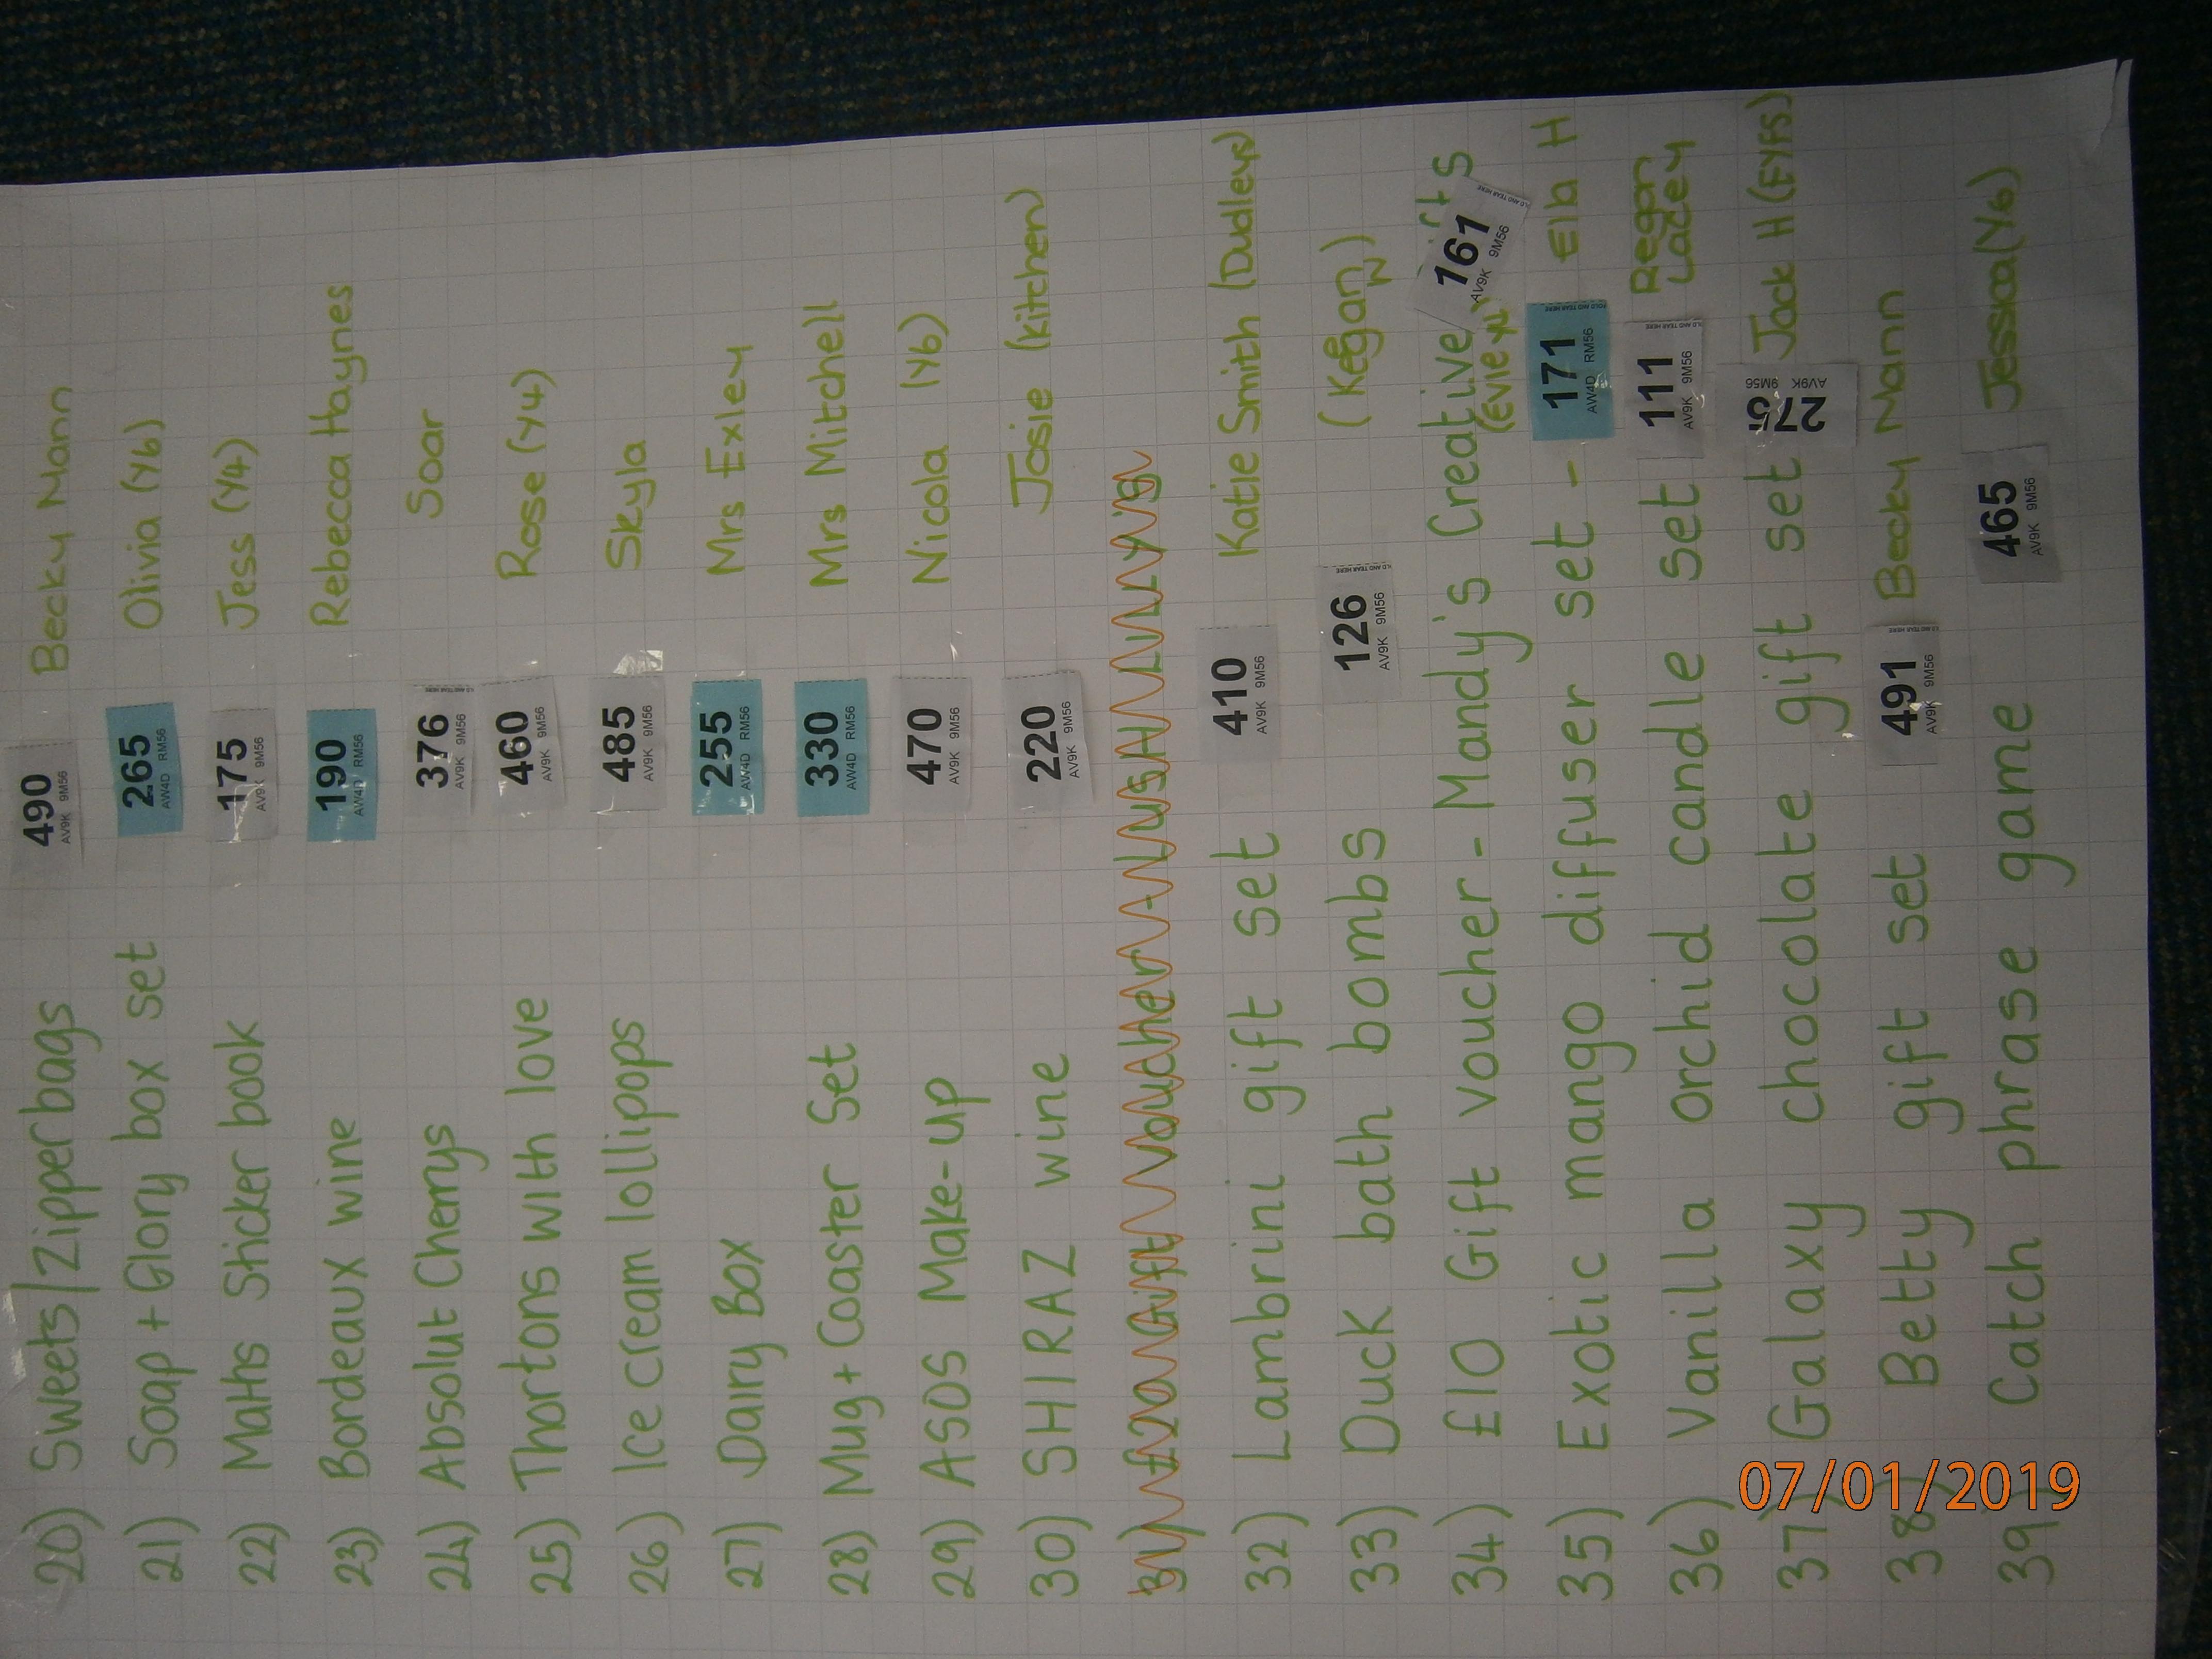 20) Sweets/Zipperbags 490 AV9K 9M56 Becky Mann
21) Soap + Glory box set 265 AW4D RM56 Olivia (Y6)
22) Maths Sticker book 175 AV9K 9M56 Jess (Y4)
23) Bordeaux wine 190 AW4D RM56 Rebecca Haynes
24) Absolut Cherrys 376 AV9K 9M56 Soar
25) Thortons with love 460 AV9K 9M56 Rose (Y4)
26) Ice cream lollipops 485 AV9K 9M56 Skyla
27) Dairy Box 255 AW4D RM56 Mrs Exley
28) Mug + Coaster Set 330 AW4D RM56 Mrs Mitchell
29) ASOS Make-up 470 AV9K 9M56 Nicola (Y6)
30) SHIRAZ wine 220 AV9K 9M56 Josie (kitchen)
31) £20 Gift voucher - LUSH LILLY'S
32) Lambrini gift set 410 AV9K 9M56 Katie Smith (Dudleys)
33) Duck bath bombs 126 AV9K 9M56 (Kegan) N
34) £10 Gift voucher - Mandy's Creative 161 AV9K 9M56
(Evie
35) Exotic mango diffuser set - 171 AW4D RM56 Elba H
36) Vanilla orchid candle set 111 AV9K 9M56 Regan Lacey
37) Galaxy chocolate gift set 275 AV9K 9M56 Jack H (EYFS)
38) Betty gift set 491 AV9K 9M56 Becky Mann
39) Catch phrase game 465 AV9K 9M56 Jessica (Y6)
07/01/2019